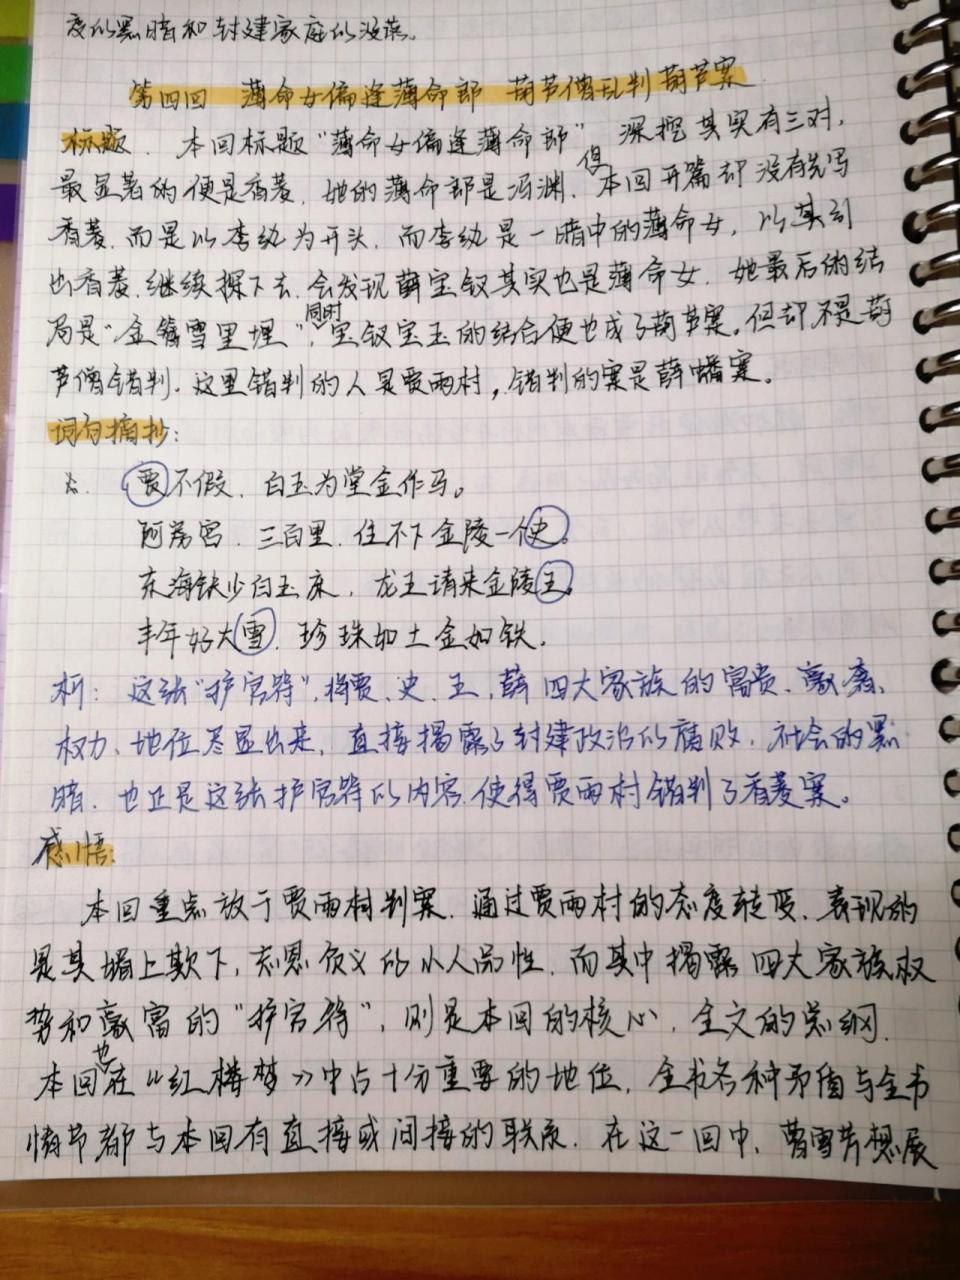 度的黑暗和封建家庭的没落。
第四回 薄命女偏逢薄命郎 葫芦僧乱判葫芦案
标题. 本回标题“薄命女偏逢薄命郎” 深挖其实有三对,
最显著的便是香菱. 她的薄命郎是冯渊. 但本回开篇却没有先写
香菱. 而是以李纨为开头. 而李纨是一暗中的薄命女. 以其引
出香菱. 继续探下去. 会发现薛宝钗其实也是薄命女. 她最后的结
局是“金簪雪里埋”, 同时宝钗宝玉的结合便也成了葫芦案. 但却不是葫
芦僧错判. 这里错判的人是贾雨村, 错判的案是薛蟠案。
词句摘抄:
贾不假. 白玉为堂金作马。
阿房宫. 三百里. 住不下金陵一个史。
东海缺少白玉床, 龙王请来金陵王。
丰年好大雪. 珍珠如土金如铁.
析: 这张“护官符”, 将贾、史、王, 薛四大家族的富贵、豪奢、
权力、地位尽显出来, 直接揭露了封建政治的腐败. 社会的黑
暗. 也正是这张护官符的内容. 使得贾雨村错判了香菱案。
感悟:
本回重点放于贾雨村判案. 通过贾雨村的态度转变. 表现的
是其媚上欺下, 忘恩负义的小人品性. 而其中揭露四大家族权
势和豪富的“护官符”, 则是本回的核心, 全文的总纲.
本回也在《红楼梦》中占十分重要的地位. 全书各种矛盾与全书
情节都与本回有直接或间接的联系. 在这一回中, 曹雪芹想展